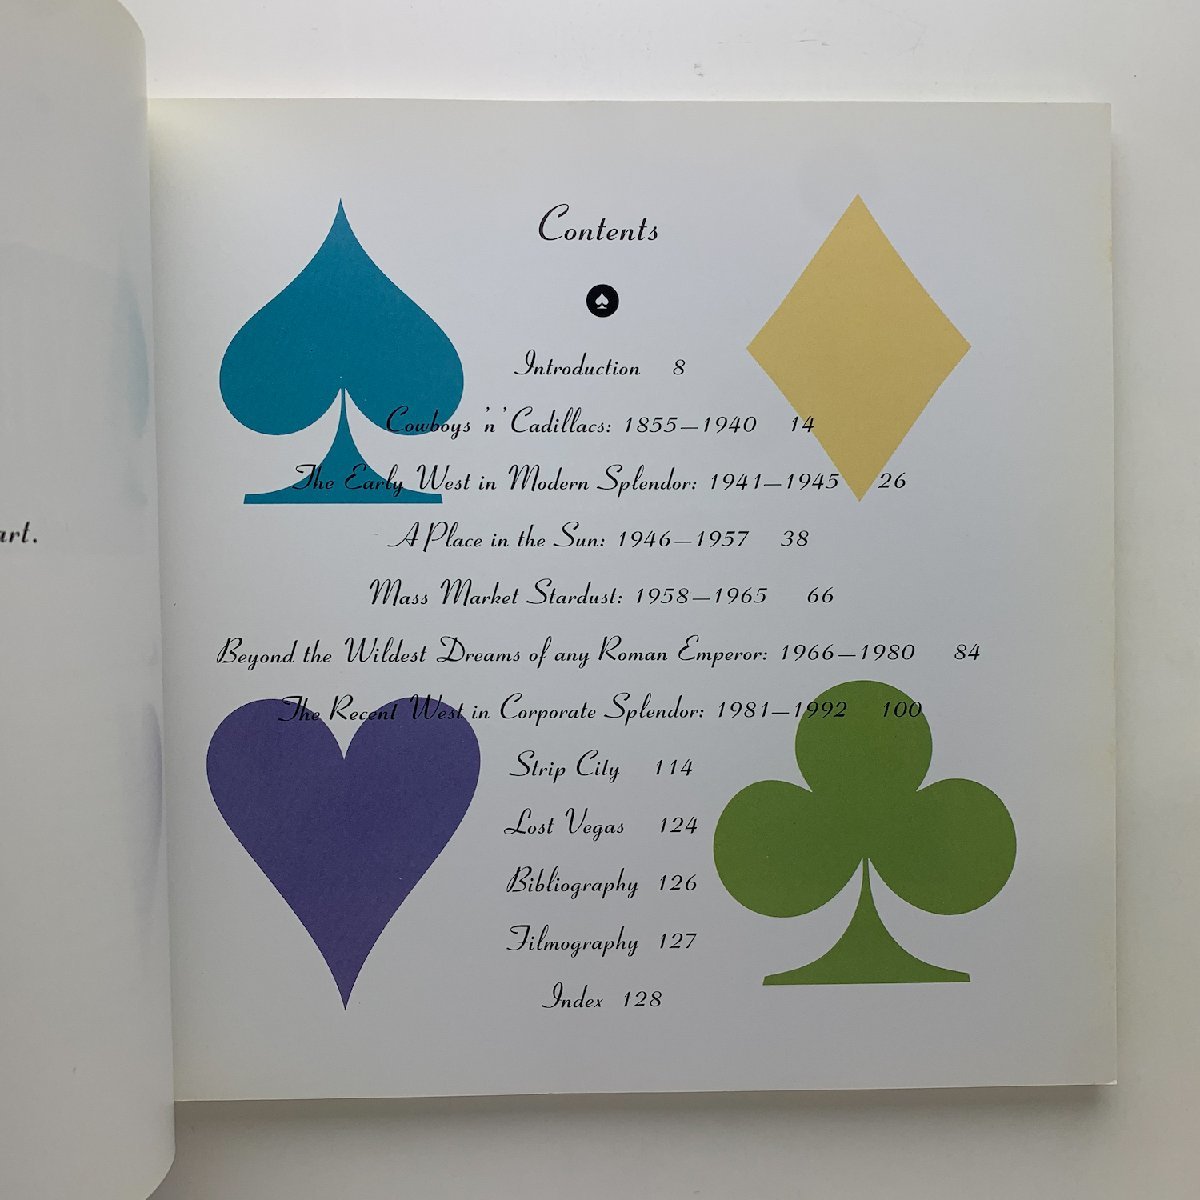 art.
Contents
Introduction 8
Cowboys 'n' Cadillacs: 1855—1940 14
The Early West in Modern Splendor: 1941—1945 26
A Place in the Sun: 1946—1957 38
Mass Market Stardust: 1958—1965 66
Beyond the Wildest Dreams of any Roman Emperor: 1966—1980 84
The Recent West in Corporate Splendor: 1981—1992 100
Strip City 114
Lost Vegas 124
Bibliography 126
Filmography 127
Index 128